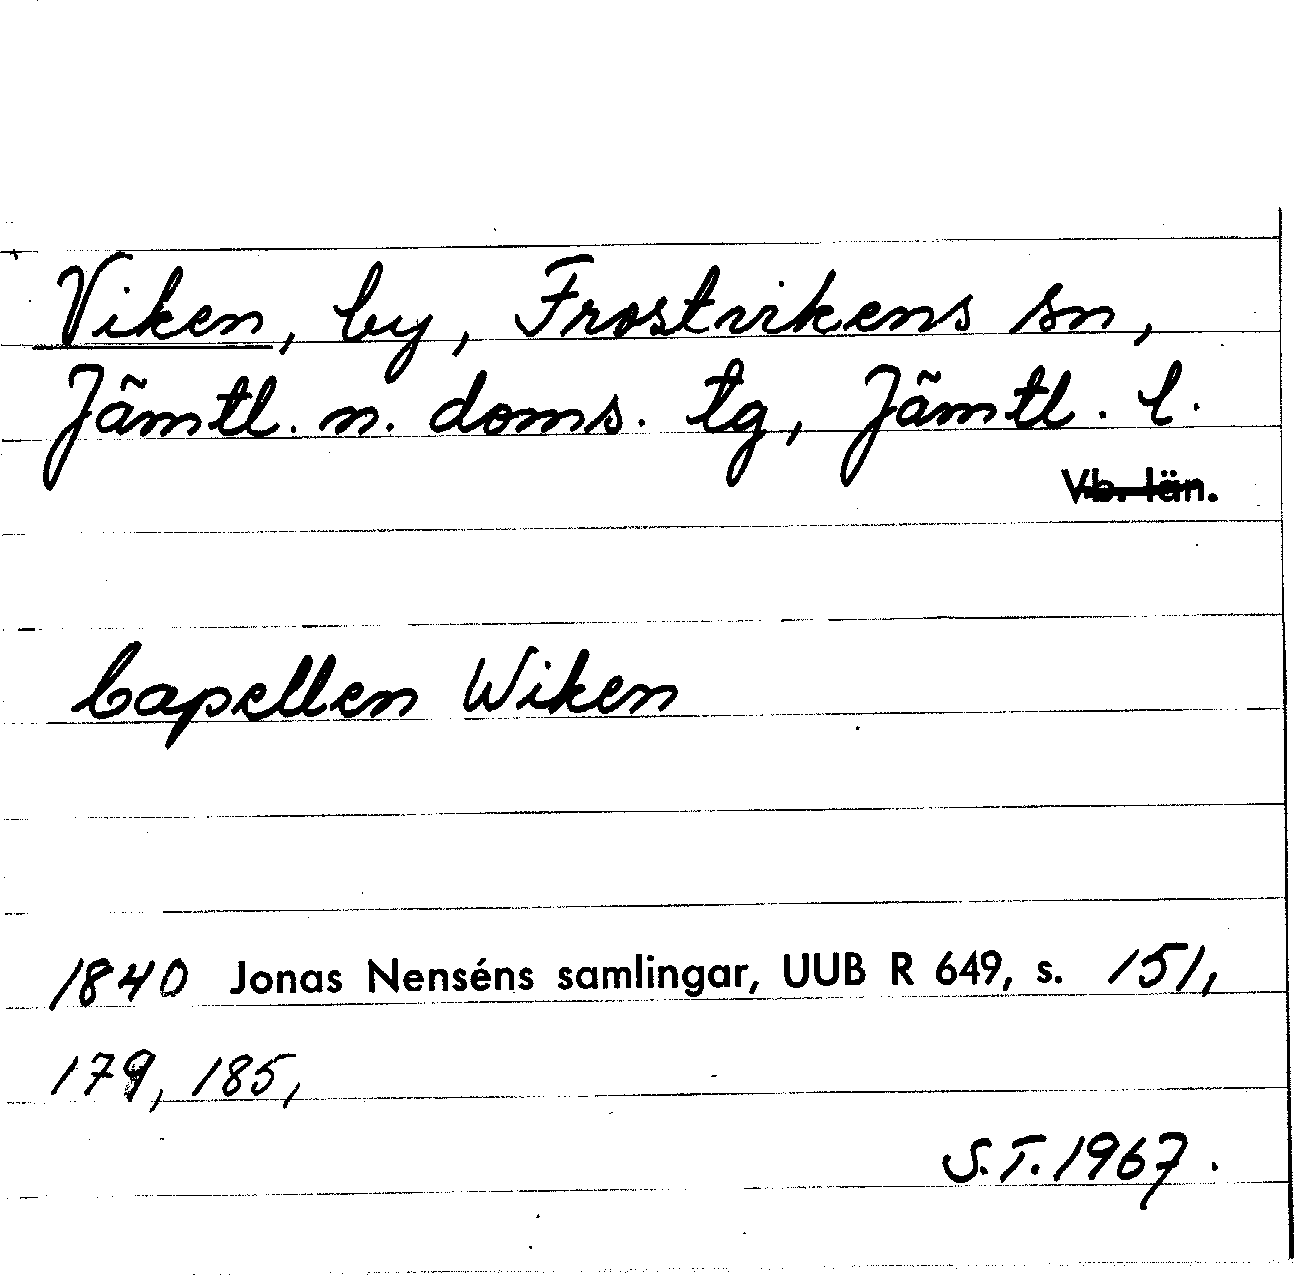 Viken, by, Frostvikens sn,
Jämtl. n. doms. tg, Jämtl. l.
Vb. län.
Capellen Wiken
1840 Jonas Nenséns samlingar, UUB R 649, s. 151,
179, 185,
S.T. 1967.